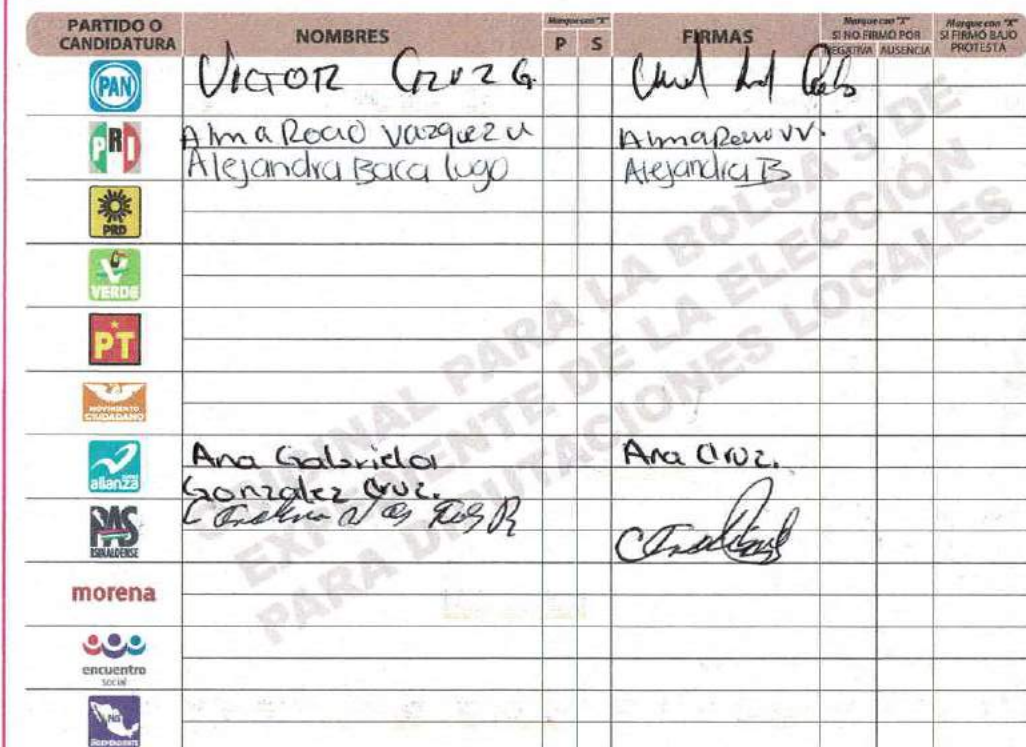 PARTIDO O CANDIDATURA
NOMBRES
Marque con "X"
P S
FIRMAS
Marque con "X"
SI NO FIRMÓ POR
NEGATIVA AUSENCIA
Marque con "X"
SI FIRMÓ BAJO
PROTESTA
PAN
VICTOR CRUZ G.
PRI
Alma Rocio Vazquez V
Alma Rocio VV.
Alejandra Baca lugo
Alejandra B
PRD
VERDE
PT
MOVIMIENTO
CIUDADANO
alianza
Ana Gabriela
Ana Cruz.
Gonzalez Cruz.
PAS
SINALOENSE
morena
encuentro
social
INDEPENDIENTE
ORIGINAL PARA LA BOLSA 5 DE
EXPEDIENTE DE LA ELECCIÓN
PARA DIPUTACIONES LOCALES